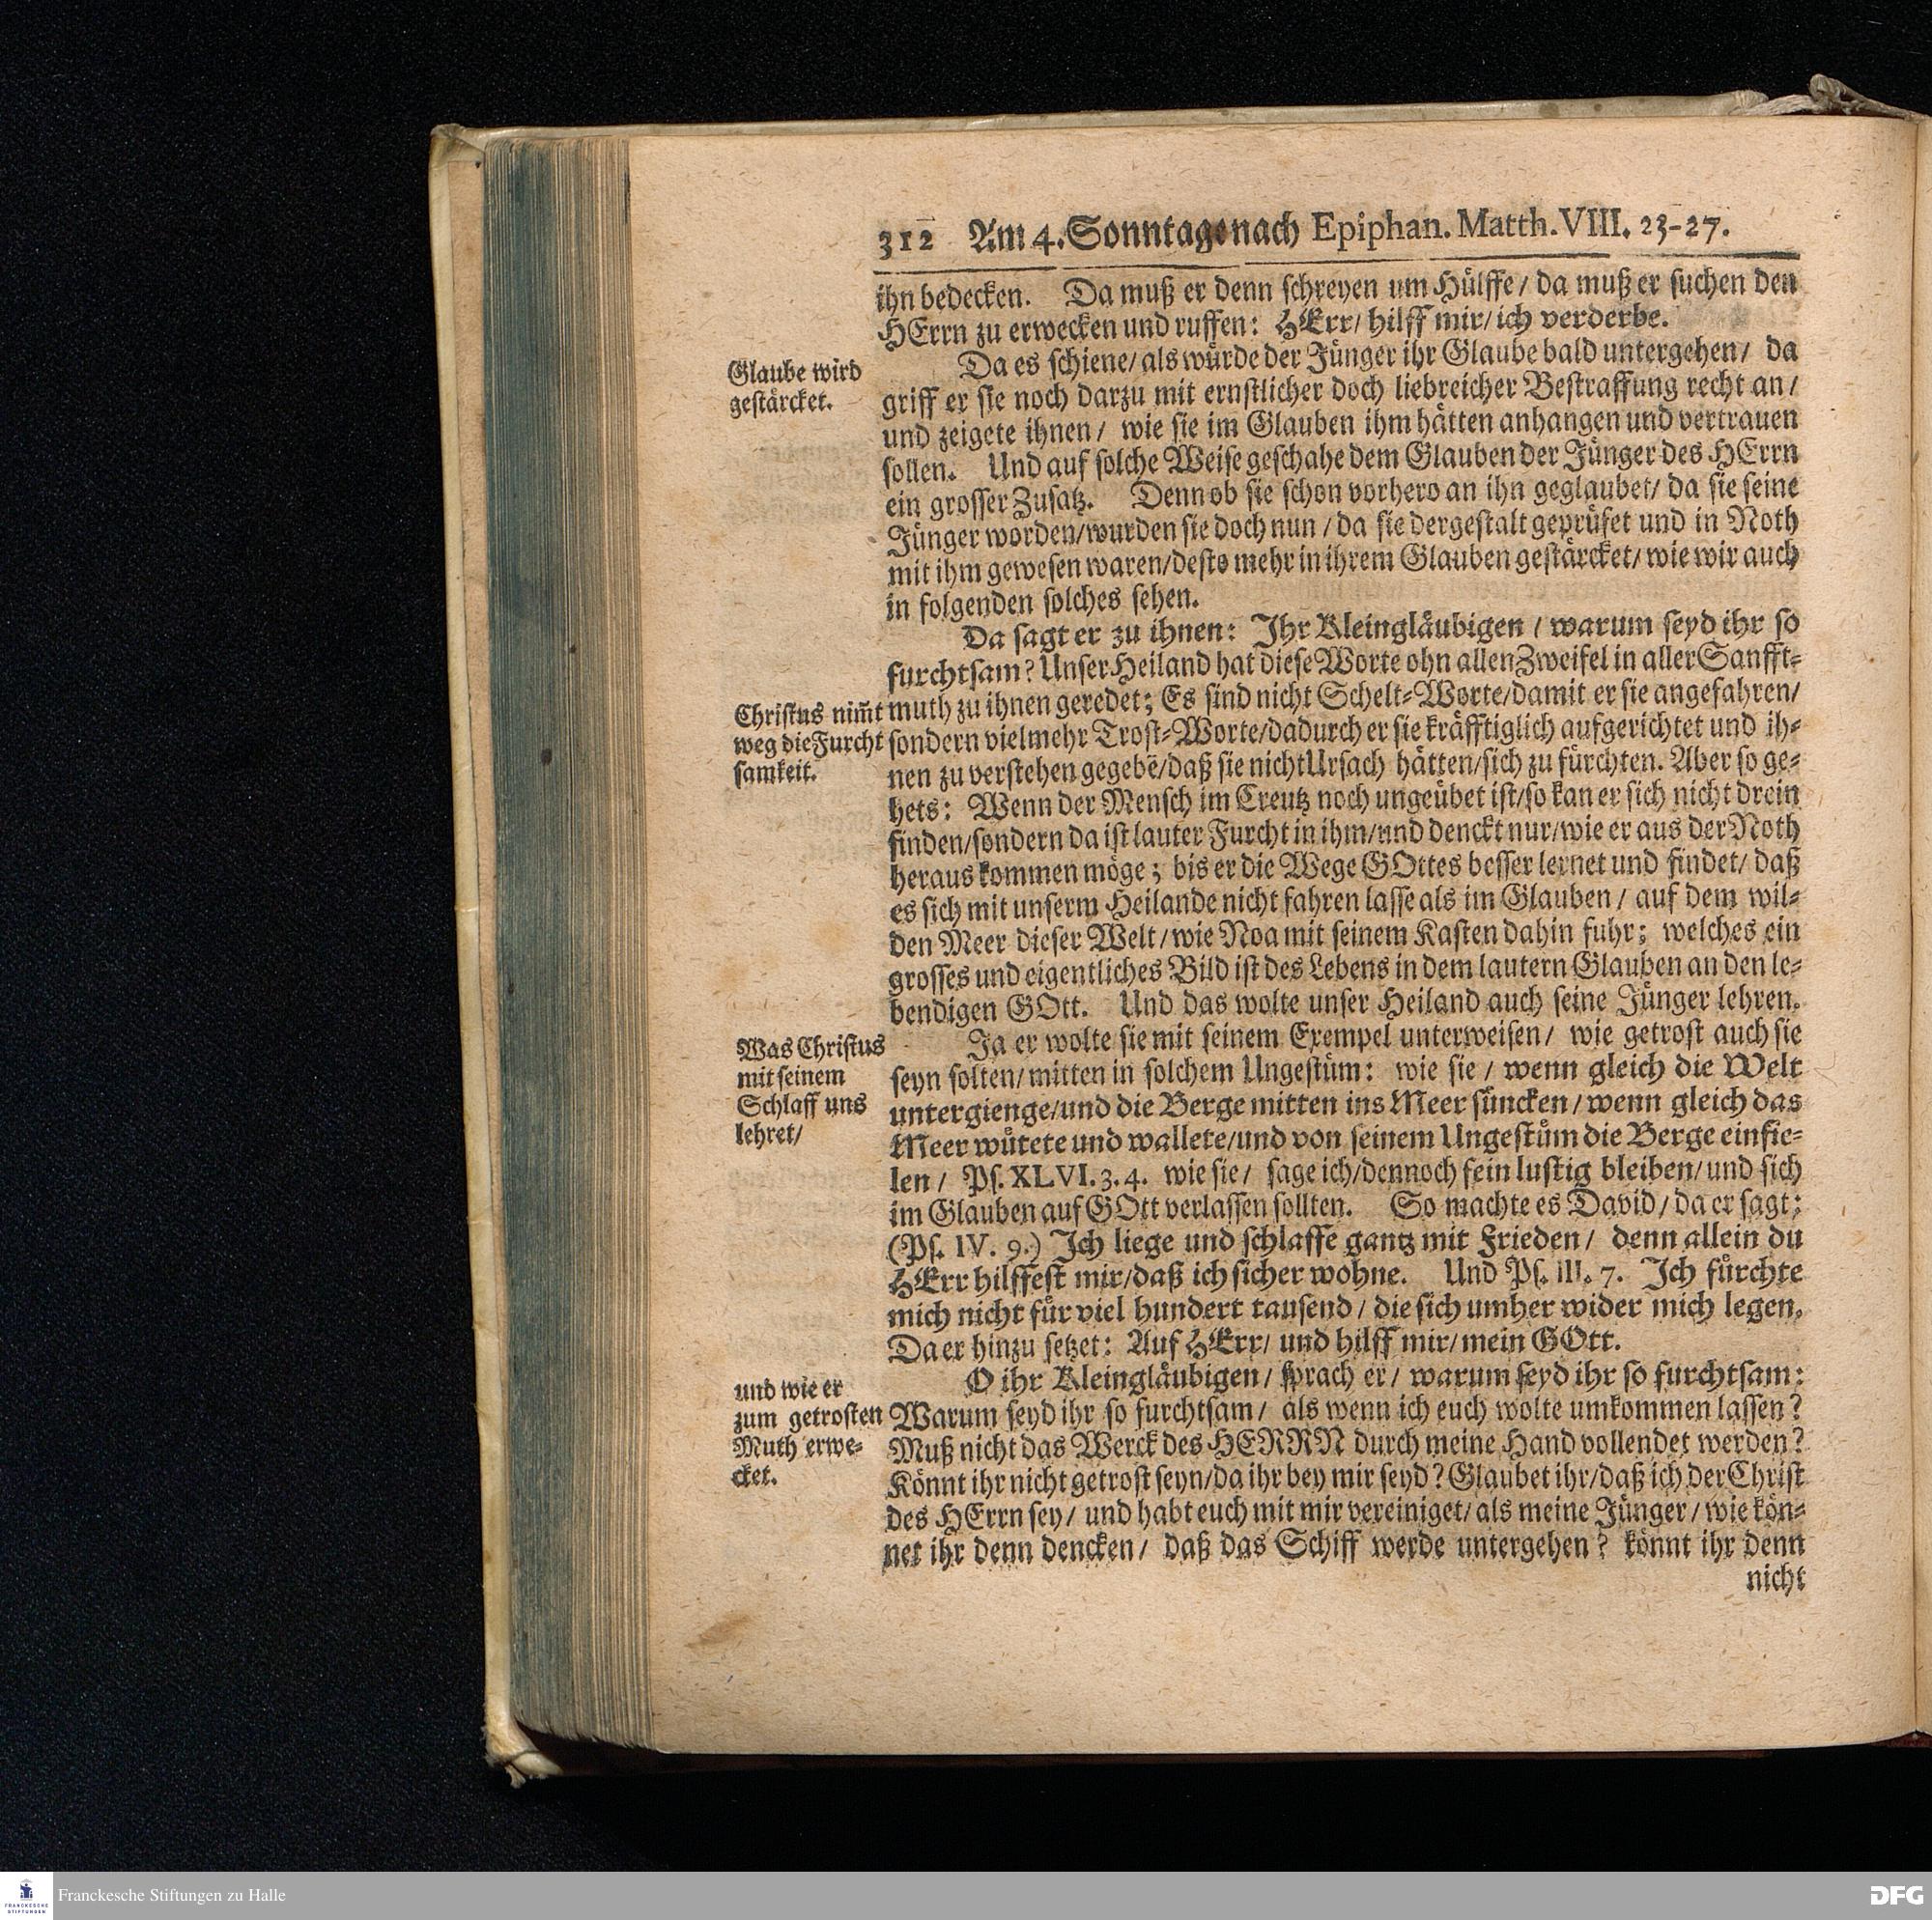 312 Am 4. Sonntage nach Epiphan. Matth. VIII. 23-27.
ihn bedecken. Da muß er denn schreyen um Hülffe / da muß er suchen den
HErrn zu erwecken und ruffen: HErr / hilff mir / ich verderbe.
Glaube wird
gestärcket.
Da es schiene / als würde der Jünger ihr Glaube bald untergehen / da
griff er sie noch darzu mit ernstlicher doch liebreicher Bestraffung recht an /
und zeigete ihnen / wie sie im Glauben ihm hätten anhangen und vertrauen
sollen. Und auf solche Weise geschahe dem Glauben der Jünger des HErrn
ein grosser Zusatz. Denn ob sie schon vorhero an ihn geglaubet / da sie seine
Jünger worden / wurden sie doch nun / da sie dergestalt geprüfet und in Noth
mit ihm gewesen waren / desto mehr in ihrem Glauben gestärcket / wie wir auch
in folgenden solches sehen.
Da sagt er zu ihnen: Ihr Kleingläubigen / warum seyd ihr so
furchtsam? Unser Heiland hat diese Worte ohn allen Zweifel in aller Sanfft-
Christus nim̃t
weg die Furcht
samkeit.
muth zu ihnen geredet; Es sind nicht Schelt-Worte / damit er sie angefahren /
sondern vielmehr Trost-Worte / dadurch er sie kräfftiglich aufgerichtet und ih-
nen zu verstehen gegebẽ / daß sie nicht Ursach hätten / sich zu fürchten. Aber so ge-
hets: Wenn der Mensch im Creutz noch ungeübet ist / so kan er sich nicht drein
finden / sondern da ist lauter Furcht in ihm / und denckt nur / wie er aus der Noth
heraus kommen möge; bis er die Wege GOttes besser lernet und findet / daß
es sich mit unserm Heilande nicht fahren lasse als im Glauben / auf dem wil-
den Meer dieser Welt / wie Noa mit seinem Kasten dahin fuhr; welches ein
grosses und eigentliches Bild ist des Lebens in dem lautern Glauben an den le-
bendigen GOtt. Und das wolte unser Heiland auch seine Jünger lehren.
Was Christus
mit seinem
Schlaff uns
lehret /
Ja er wolte sie mit seinem Exempel unterweisen / wie getrost auch sie
seyn solten / mitten in solchem Ungestüm: wie sie / wenn gleich die Welt
untergienge / und die Berge mitten ins Meer süncken / wenn gleich das
Meer wütete und wallete / und von seinem Ungestüm die Berge einfie-
len / Ps. XLVI. 3. 4. wie sie / sage ich / dennoch fein lustig bleiben / und sich
im Glauben auf GOtt verlassen sollten. So machte es David / da er sagt:
(Ps. IV. 9.) Ich liege und schlaffe gantz mit Frieden / denn allein du
HErr hilffest mir / daß ich sicher wohne. Und Ps. III. 7. Ich fürchte
mich nicht für viel hundert tausend / die sich umher wider mich legen.
Da er hinzu setzet: Auf HErr / und hilff mir / mein GOtt.
und wie er
zum getrosten
Muth erwe-
cket.
O ihr Kleingläubigen / sprach er / warum seyd ihr so furchtsam:
Warum seyd ihr so furchtsam / als wenn ich euch wolte umkommen lassen?
Muß nicht das Werck des HERRN durch meine Hand vollendet werden?
Könnt ihr nicht getrost seyn / da ihr bey mir seyd? Glaubet ihr / daß ich der Christ
des HErrn sey / und habt euch mit mir vereiniget / als meine Jünger / wie kön-
net ihr denn dencken / daß das Schiff werde untergehen? könnt ihr denn
nicht
FRANCKESCHE
STIFTUNGEN
Franckesche Stiftungen zu Halle
DFG